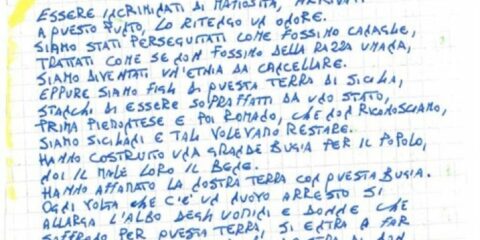 ESSERE INCRIMINATI DI MAFIOSITÀ, ARRIVATI
A QUESTO PUNTO, LO RITENGO UN ONORE.
SIAMO STATI PERSEGUITATI COME FOSSIMO CANAGLIE,
TRATTATI COME SE NON FOSSIMO DELLA RAZZA UMANA,
SIAMO DIVENTATI UN'ETNIA DA CANCELLARE.
EPPURE SIAMO FIGLI DI QUESTA TERRA DI SICILIA,
STANCHI DI ESSERE SOPRAFFATTI DA UNO STATO,
PRIMA PIEMONTESE E POI ROMANO, CHE NON RICONOSCIAMO,
SIAMO SICILIANI E TALI VOLEVAMO RESTARE.
HANNO COSTRUITO UNA GRANDE BUGIA PER IL POPOLO,
NOI IL MALE LORO IL BENE.
HANNO AFFAMATO LA NOSTRA TERRA CON QUESTA BUGIA.
OGNI VOLTA CHE C'E' UN NUOVO ARRESTO SI
ALLARGA L'ALBO DEGLI UOMINI E DONNE CHE
SOFFRONO PER QUESTA TERRA, SI ENTRA A FAR